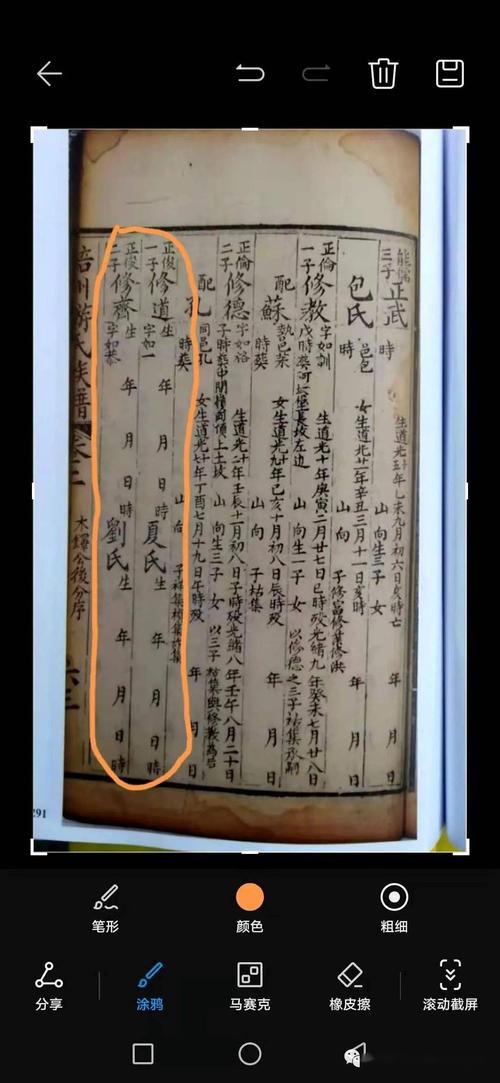 能儒三子正武
時
生道光十五年乙未九月初六日亥時亡
山向生三子女
年月日
包氏
邑包
時
女生道光廿一年辛丑三月十一日亥時
山向
子修富修業修洪
年月日
正倫一子修教
字如訓
生道光十年庚寅二月廿七日巳時歿光緒九年癸未七月廿八日
戊時葵河
左边
山向生一子女
以修德之三子祜集承嗣
配蘇
時葵
女生道光九年己亥十月初八日辰時歿
山向
子祜集
年月日
正倫二子修德
字如裕
生道光十二年壬辰十二月初八日子時歿光緒八年壬午八月二十日
子時葵
上土坟
山向生子女
配孔
同邑孔
時葵
女生道光十七年丁酉七月十九日午時歿
山向
年月日
正俊一子修道
字如一
生年月日時
夏氏
生年月日時
正俊二子修齋
字如恭
年月日時
劉氏
生年月日時
涪州游氏族譜
卷三
木鐸公後分序
六三
291
笔形
颜色
粗细
分享
涂鸦
马赛克
橡皮擦
滚动截屏